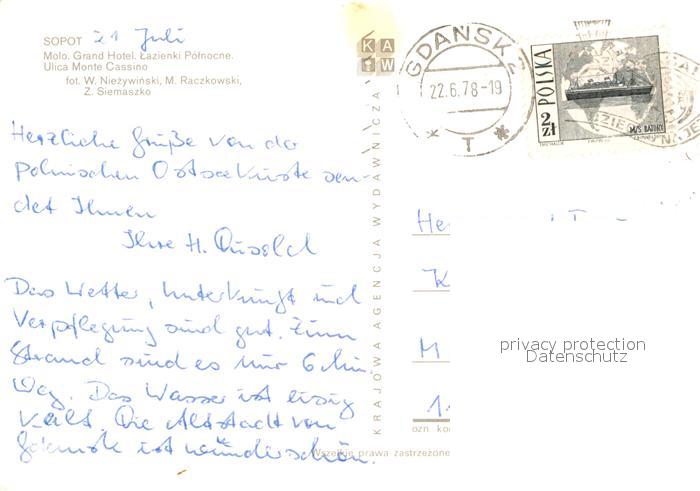 SOPOT 21 Juli
Molo. Grand Hotel. Łazienki Północne.
Ulica Monte Cassino
fot. W. Nieżywiński, M. Raczkowski,
Z. Siemaszko
Herzliche Grüße von der
polnischen Ostseeküste sen-
det Ihnen
Ihre H.
Das Wetter, Unterkunft und
Verpflegung sind gut. Zum
Strand sind es nur 6 Min.
Weg. Das Wasser ist eisig
kalt. Die Altstadt von
Gdansk ist wunderschön.
KAW
KRAJOWA AGENCJA WYDAWNICZA
GDAŃSK 2
22.6.78-19
* T *
POLSKA
2 zł
M/S BATORY
He
K
M
1
ozn. ko
Wszelkie prawa zastrzeżone
privacy protection
Datenschutz